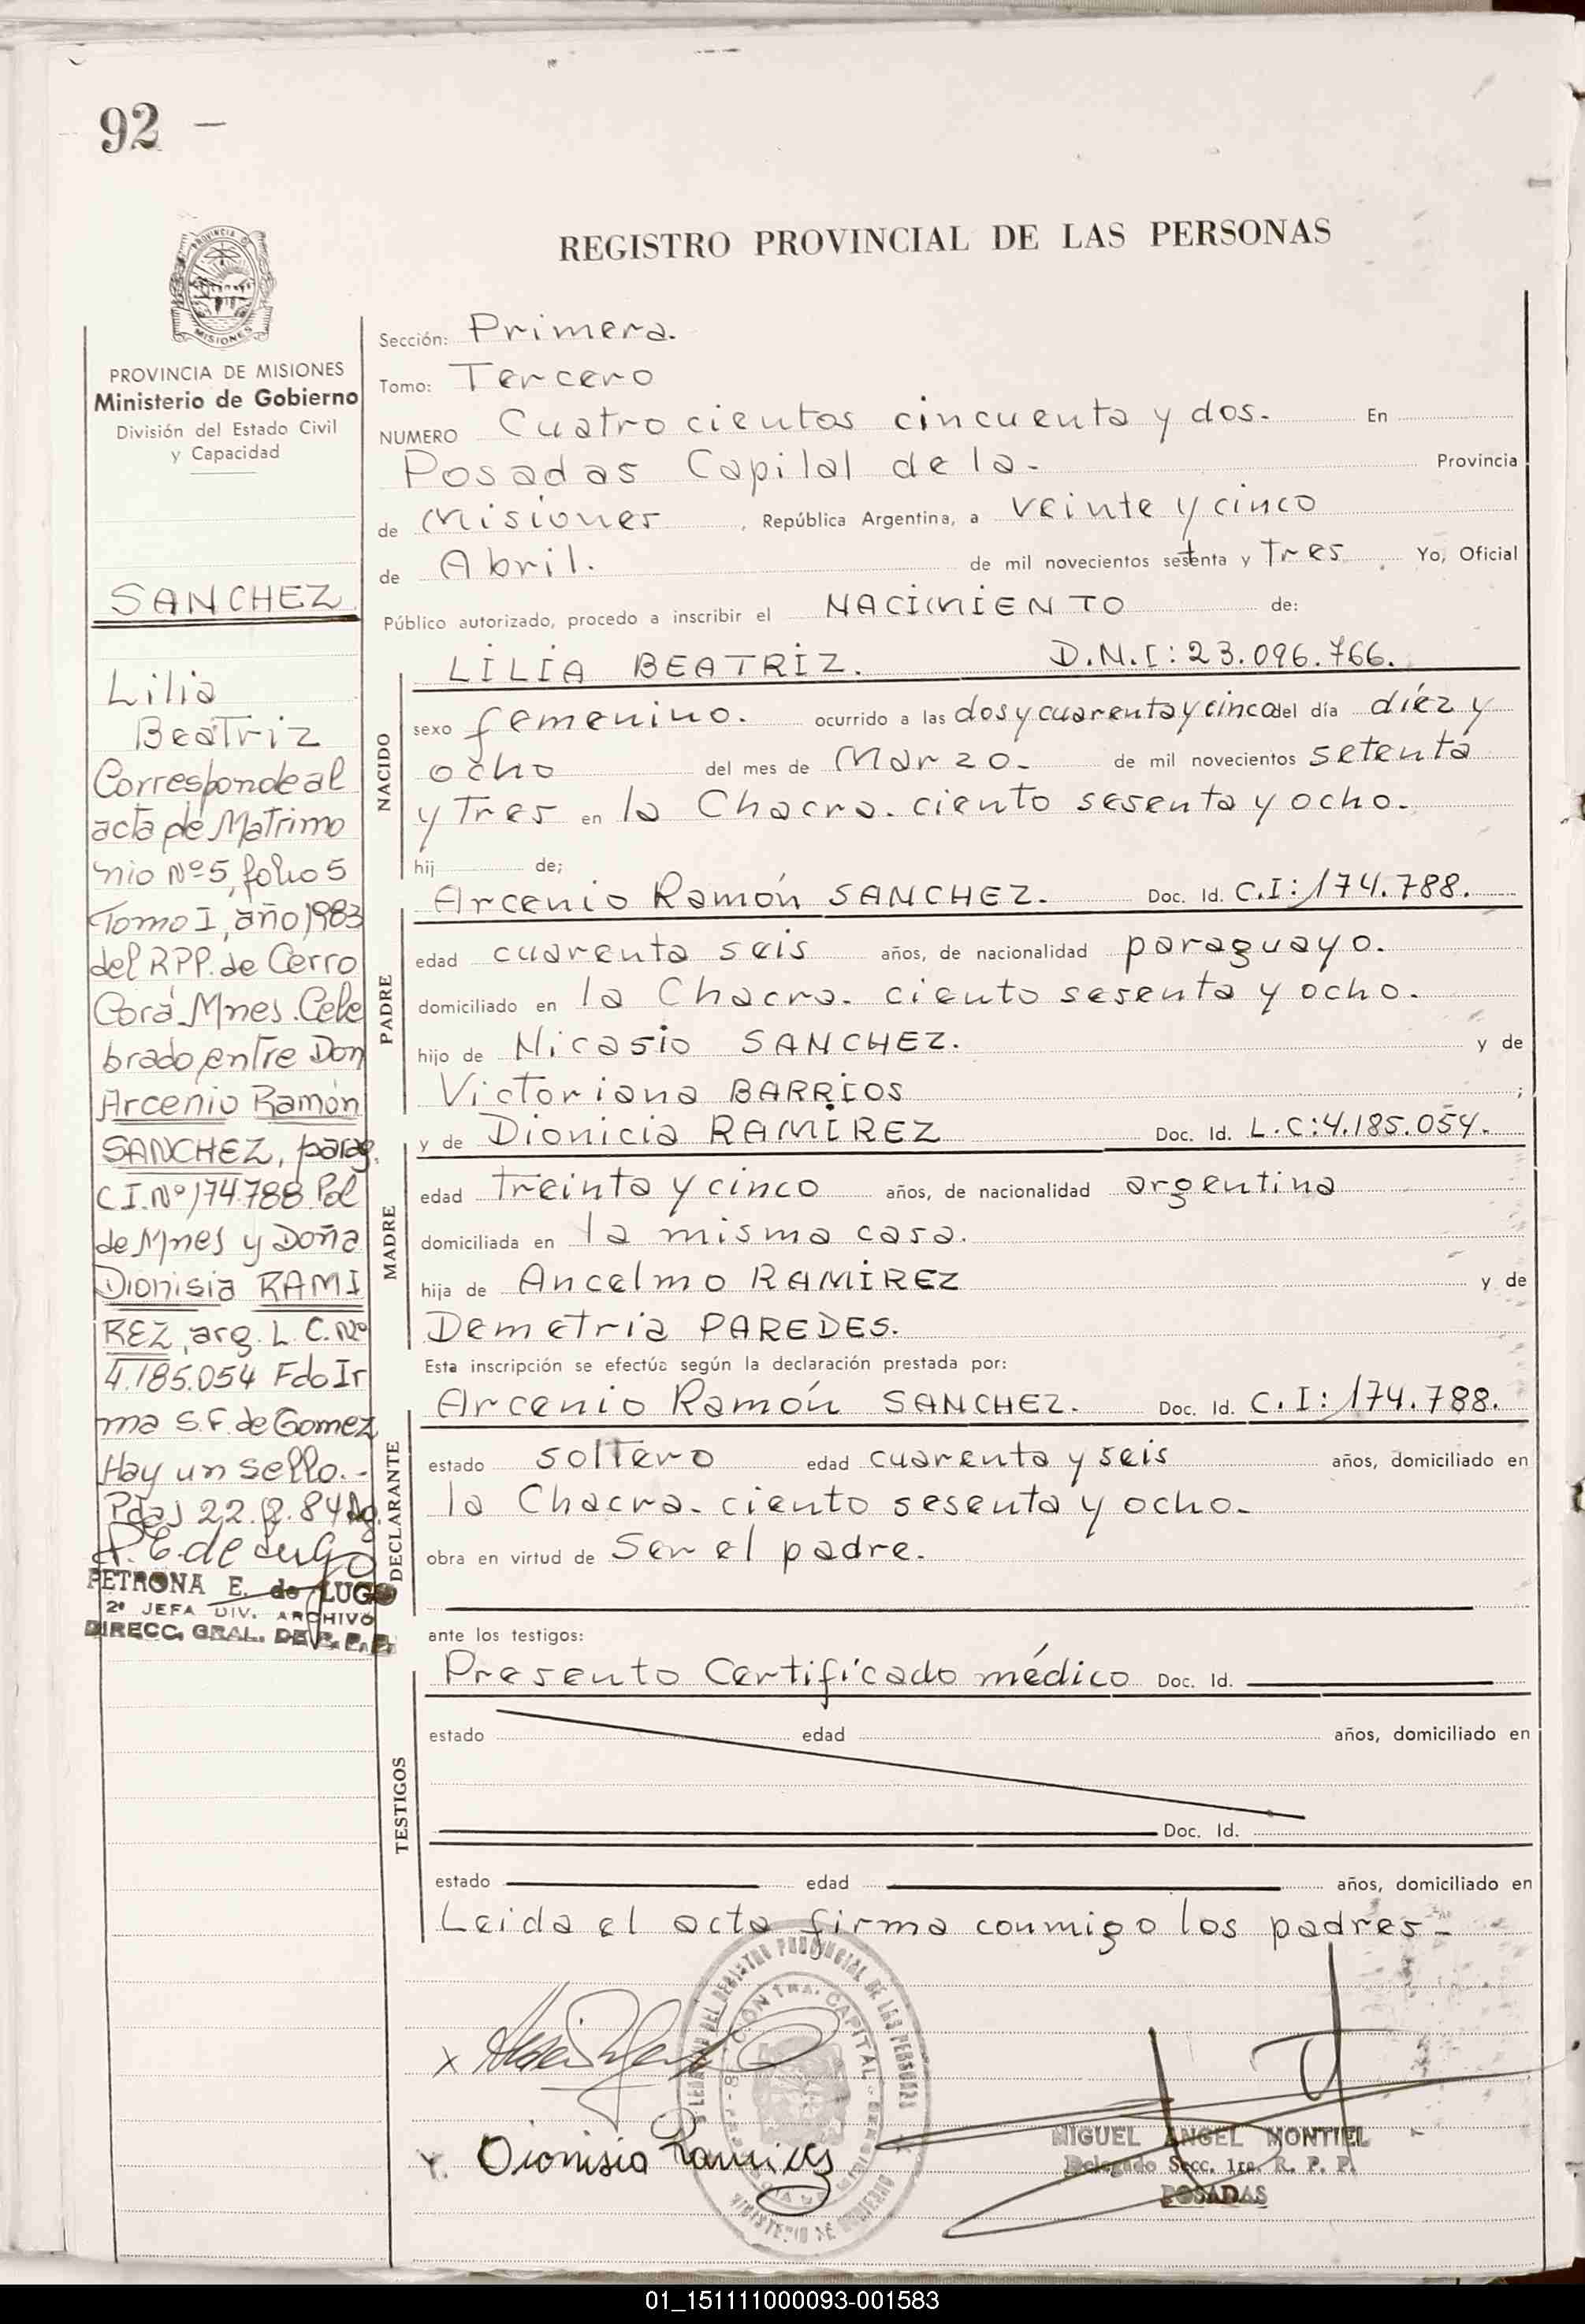 92 -
PROVINCIA DE MISIONES
PROVINCIA DE MISIONES
Ministerio de Gobierno
División del Estado Civil
y Capacidad
SANCHEZ
Lilia
Beatriz
Corresponde al
acta de Matrimo
nio Nº 5, folio 5
Tomo I, año 1983
del RPP. de Cerro
Corá Mnes. Cele
brado entre Don
Arcenio Ramón
SANCHEZ, parag.
C.I. Nº 174.788 Pol
de Mnes y Doña
Dionisia RAMI
REZ, arg. L.C. Nº
4.185.054 Fdo Ir
ma S.F. de Gomez
Hay un sello.-
Pdas 22. .84
P. E. de Lugo
PETRONA E. de LUGO
2ª JEFA DIV. ARCHIVO
DIRECC. GRAL. DE R. P. P.
REGISTRO PROVINCIAL DE LAS PERSONAS
Sección: Primera.
Tomo: Tercero
NUMERO Cuatrocientos cincuenta y dos. En
Posadas Capital de la - Provincia
de Misiones, República Argentina, a veinte y cinco
de Abril. de mil novecientos setenta y Tres. Yo, Oficial
Público autorizado, procedo a inscribir el NACIMIENTO de:
LILIA BEATRIZ. D.N.I: 23.096.766.
NACIDO
sexo femenino. ocurrido a las dos y cuarenta y cinco del día diez y
ocho del mes de Marzo. de mil novecientos setenta
y Tres en la Chacra. ciento sesenta y ocho.
hij de;
Arcenio Ramón SANCHEZ. Doc. Id. C.I: 174.788.
PADRE
edad cuarenta seis años, de nacionalidad paraguayo.
domiciliado en la Chacra. ciento sesenta y ocho.
hijo de Nicasio SANCHEZ. y de
Victoriana BARRIOS ;
y de Dionicia RAMIREZ Doc. Id. L.C: 4.185.054.
MADRE
edad treinta y cinco años, de nacionalidad argentina
domiciliada en la misma casa.
hija de Ancelmo RAMIREZ y de
Demetria PAREDES.
Esta inscripción se efectúa según la declaración prestada por:
Arcenio Ramón SANCHEZ. Doc. Id. C.I: 174.788.
DECLARANTE
estado soltero edad cuarenta y seis años, domiciliado en
la Chacra. ciento sesenta y ocho.
obra en virtud de Ser el padre.
ante los testigos:
Presento Certificado médico Doc. Id.
TESTIGOS
estado edad años, domiciliado en
Doc. Id.
estado edad años, domiciliado en
Leida el acta firma conmigo los padres -
x
Dionisia Ramirez
MIGUEL ANGEL MONTIEL
Delegado Secc. 1ra. R. P. P.
POSADAS
01_151111000093-001583